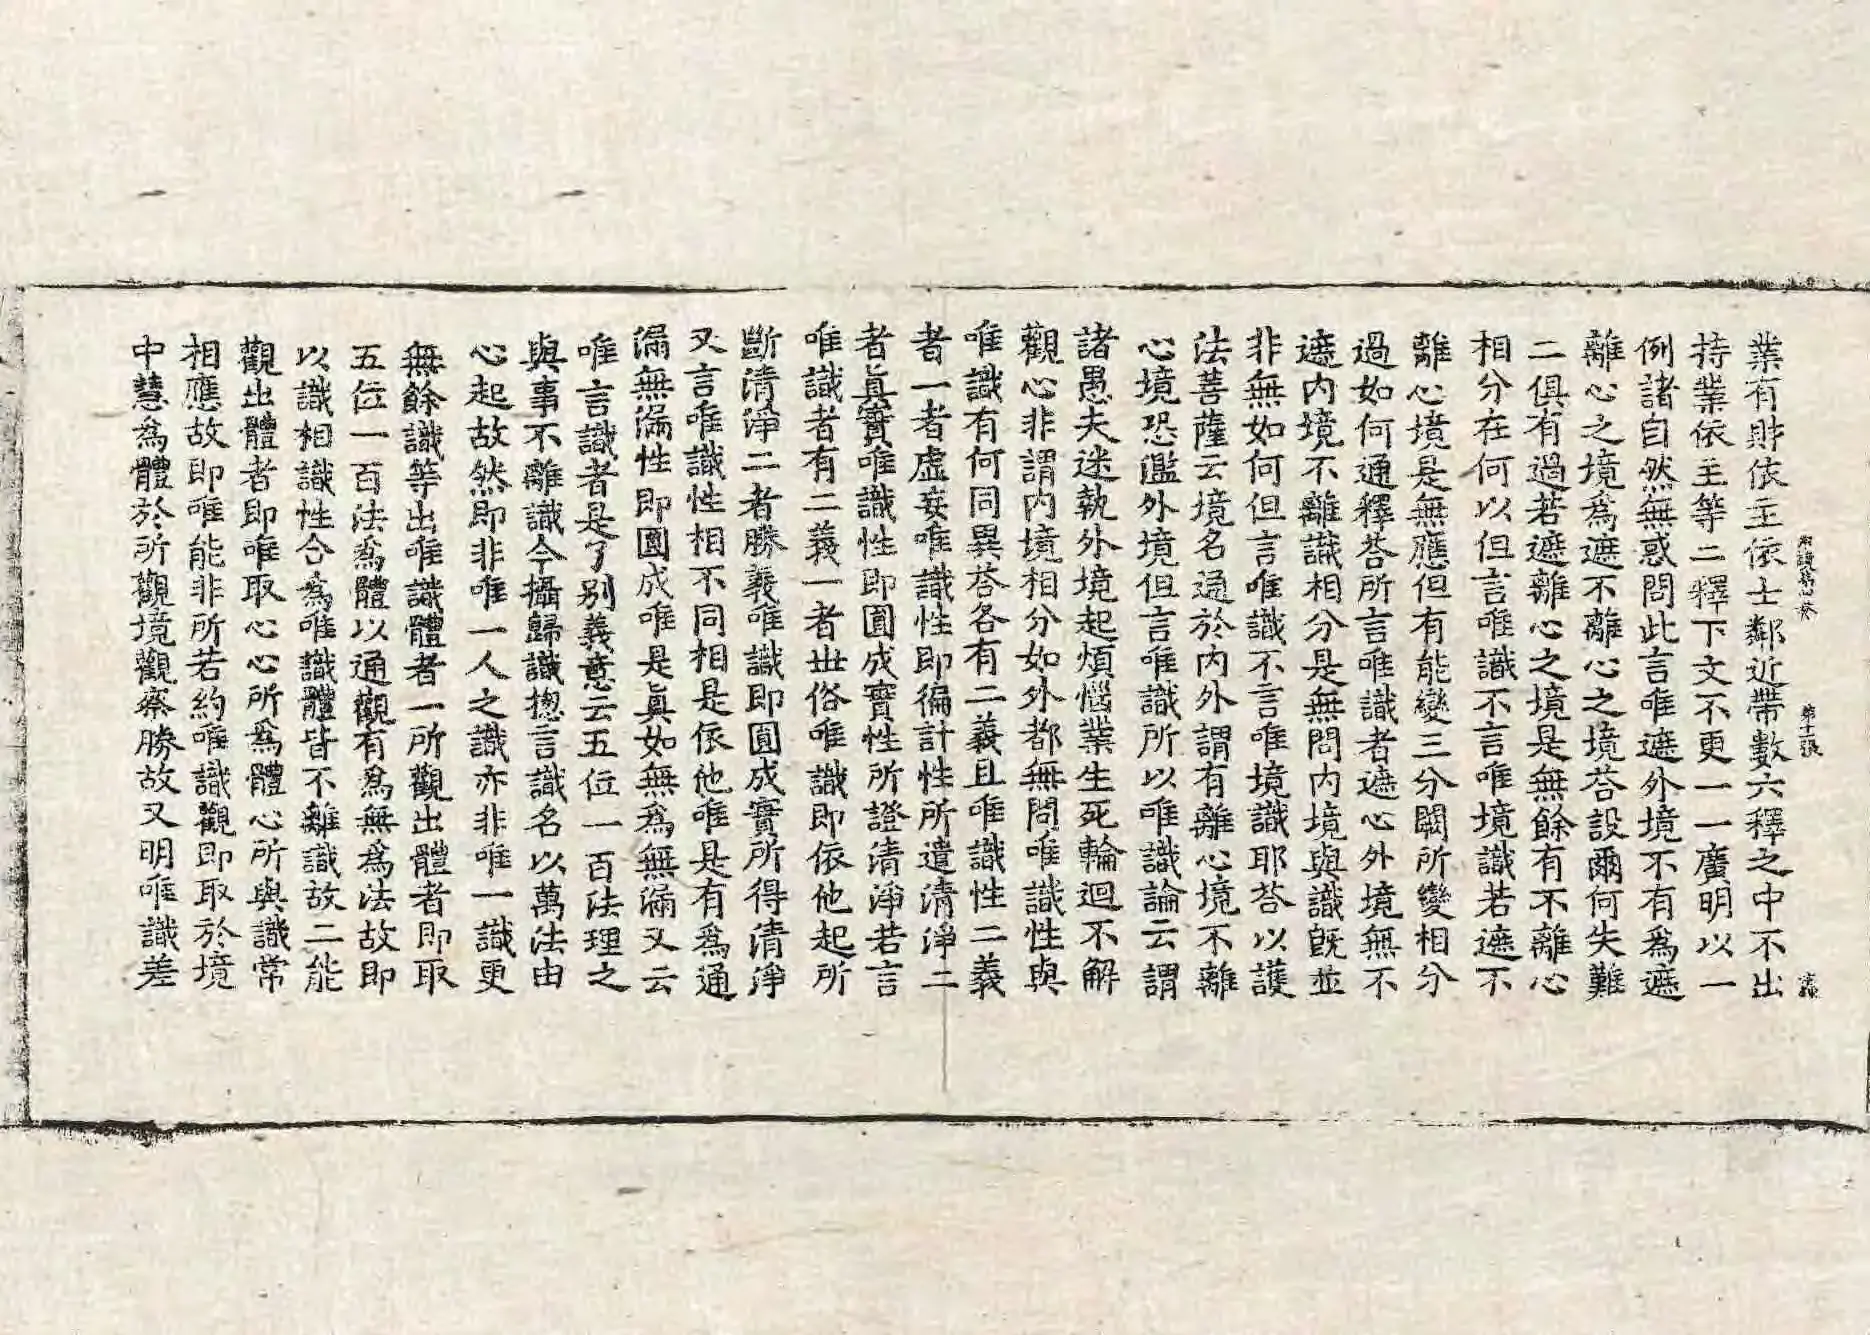 業有財依主依士鄰近帶數六釋之中不出
持業依主等二釋下文不更一一廣明以一
例諸自然無惑問此言唯遮外境不有爲遮
離心之境爲遮不離心之境荅設爾何失難
二俱有過若遮離心之境是無餘有不離心
相分在何以但言唯識不言唯境識若遮不
離心境是無應但有能變三分闕所變相分
過如何通釋荅所言唯識者遮心外境無不
遮内境不離識相分是無問内境與識旣並
非無如何但言唯識不言唯境識耶荅以護
法菩薩云境名通於内外謂有離心境不離
心境恐濫外境但言唯識所以唯識論云謂
諸愚夫迷執外境起煩惱業生死輪迴不解
觀心非謂内境相分如外都無問唯識性與
唯識有何同異荅各有二義且唯識性二義
者一者虛妄唯識性即徧計性所遣清淨二
者眞實唯識性即圓成實性所證清淨若言
唯識者有二義一者世俗唯識即依他起所
斷清淨二者勝義唯識即圓成實所得清淨
又言唯識性相不同相是依他唯是有爲通
漏無漏性即圓成唯是眞如無爲無漏又云
唯言識者是了別義意云五位一百法理之
與事不離識今攝歸識揔言識名以萬法由
心起故然即非唯一人之識亦非唯一識更
無餘識等出唯識體者一所觀出體者即取
五位一百法爲體以通觀有爲無爲法故即
以識相識性合爲唯識體皆不離識故二能
觀出體者即唯取心心所爲體心所與識常
相應故即唯能非所若約唯識觀即取於境
中慧爲體於所觀境觀察勝故又明唯識差